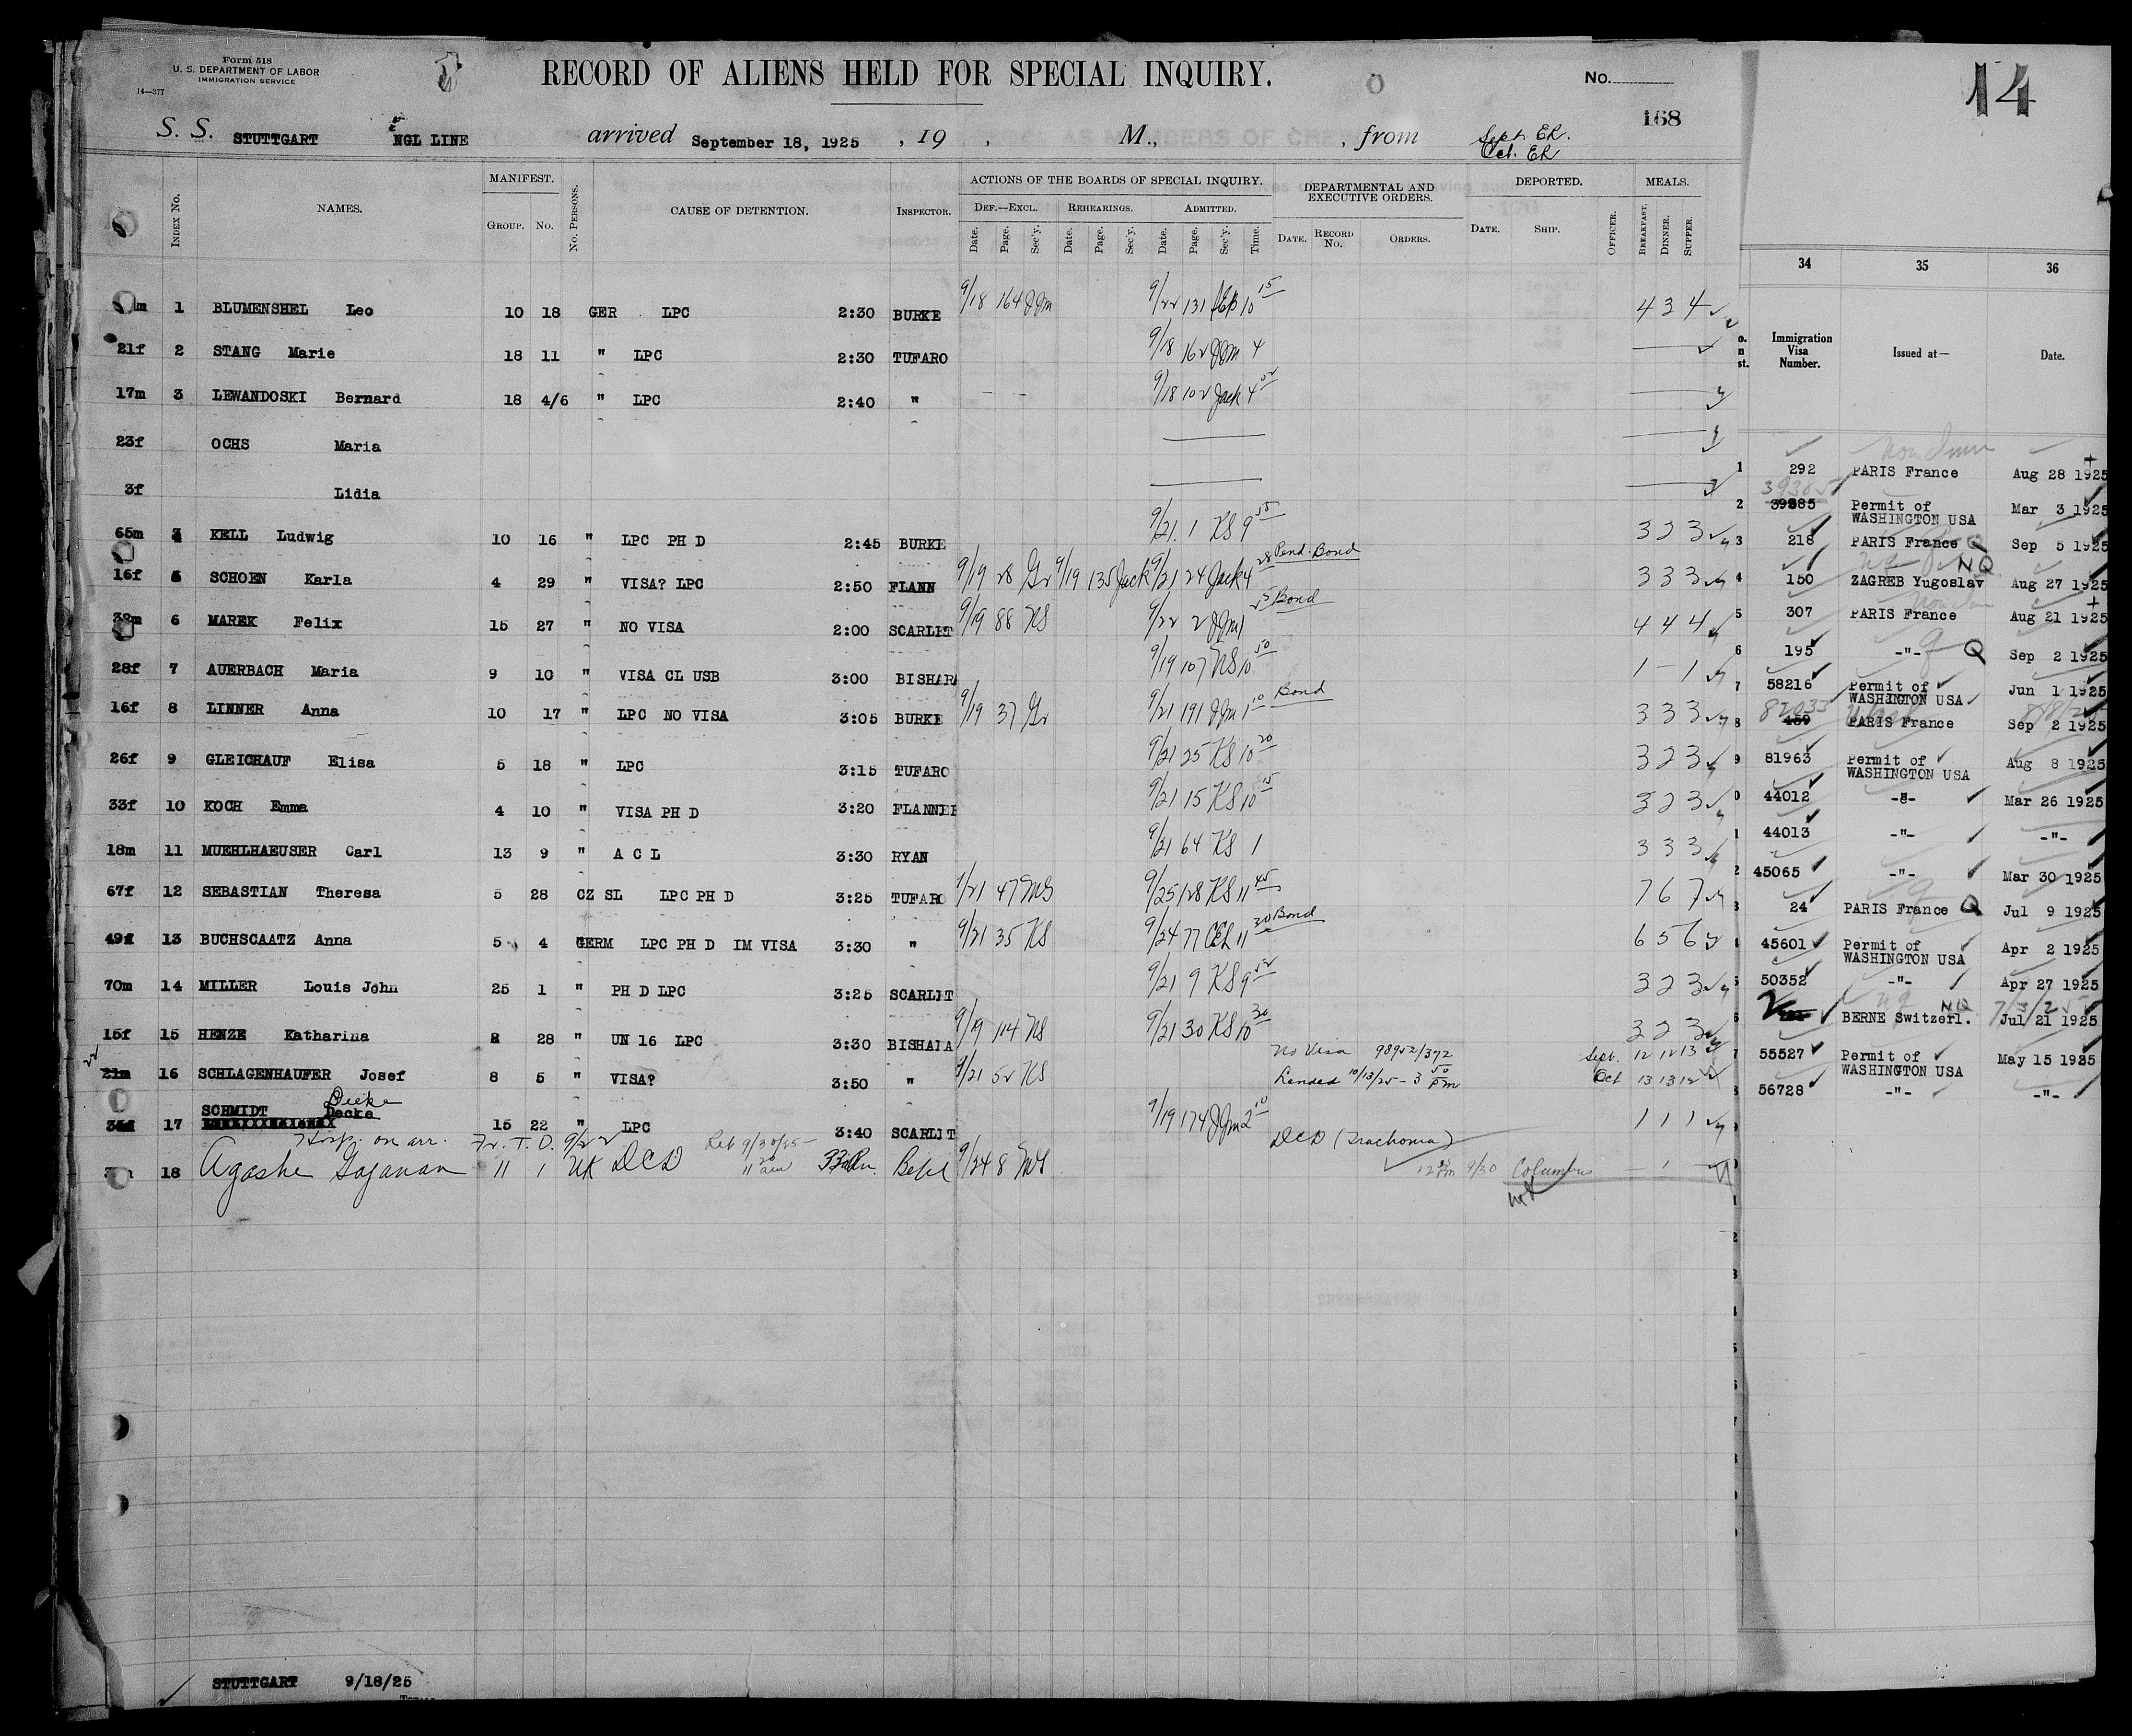 Form 518
U. S. DEPARTMENT OF LABOR
IMMIGRATION SERVICE
14—377
RECORD OF ALIENS HELD FOR SPECIAL INQUIRY.
No.
168
14
S. S. STUTTGART NGL LINE arrived September 18, 1925 , 19 , M., , from Sept. ER.
Oct. ER
INDEX No. NAMES. MANIFEST. GROUP. No. No. PERSONS. CAUSE OF DETENTION. INSPECTOR.
ACTIONS OF THE BOARDS OF SPECIAL INQUIRY. DEF.—EXCL. REHEARINGS. ADMITTED.
Date. Page. Sec'y. Date. Page. Sec'y. Date. Page. Sec'y. Time.
DEPARTMENTAL AND EXECUTIVE ORDERS. DATE. RECORD No. ORDERS.
DEPORTED. DATE. SHIP. OFFICER. MEALS. BREAKFAST. DINNER. SUPPER.
m 1 BLUMENSHEL Leo 10 18 GER LPC 2:30 BURKE 9/18 164 JJM 9/22 131 10 15 4 3 4
21f 2 STANG Marie 18 11 " LPC 2:30 TUFARO 9/18 162 JJM 4
17m 3 LEWANDOSKI Bernard 18 4/6 " LPC 2:40 " 9/18 102 Jack 4
23f OCHS Maria
3f Lidia
65m 4 KELL Ludwig 10 16 " LPC PH D 2:45 BURKE 9/21 1 KS 9 55 3 2 3
16f 5 SCHOEN Karla 4 29 " VISA? LPC 2:50 FLANN 9/19 28 Gr 9/19 135 Jack 9/21 24 Jack 4 28 Pend. Bond 3 3 3
6 MAREK Felix 15 27 " NO VISA 2:00 SCARLET 9/19 88 NS 9/22 2 JJM 1 25 Bond 4 4 4
28f 7 AUERBACH Maria 9 10 " VISA CL USB 3:00 BISHARA 9/19 107 NS 10 50 1 – 1
16f 8 LINNER Anna 10 17 " LPC NO VISA 3:05 BURKE 9/19 37 Gr 9/21 191 JJM 1 10 Bond 3 3 3
26f 9 GLEICHAUF Elisa 5 18 " LPC 3:15 TUFARO 9/21 25 KS 10 20 3 2 3
33f 10 KOCH Emma 4 10 " VISA PH D 3:20 FLANNER 9/21 15 KS 10 15 3 2 3
18m 11 MUEHLHAEUSER Carl 13 9 " A C L 3:30 RYAN 9/21 64 KS 1 3 3 3
67f 12 SEBASTIAN Theresa 5 28 CZ SL LPC PH D 3:25 TUFARO 9/21 47 MS 9/25 128 KS 11 45 7 6 7
49f 13 BUCHSCAATZ Anna 5 4 GERM LPC PH D IM VISA 3:30 " 9/21 35 KS 9/24 77 11 30 Bond 6 5 6
70m 14 MILLER Louis John 25 1 " PH D LPC 3:25 SCARLIT 9/21 9 KS 9 52 3 2 3
15f 15 HENZE Katharina 8 28 " UN 16 LPC 3:30 BISHAIA 9/19 114 NS 9/21 30 KS 10 30 3 2 3
No Visa 98952/372 Sept. 12 12 13
22 21m 16 SCHLAGENHAUFER Josef 8 5 " VISA? 3:50 " 9/21 52 KS Landed 10/13/25 – 3 50 pm Oct 13 13 12
Dieke
17 SCHMIDT Decke 15 22 " LPC 3:40 SCARLIT 9/19 174 JJM 2 10 1 1 1
Hosp. on arr. Fr. T. D. 9/22 9/30/25 11 20 am DCD (Trachoma)
18 Agashe Gajanan 11 1 DCD 9/24 8 MS 12 pm 9/30 Columbus – 1 –
STUTTGART 9/18/25
34 35 36
Immigration Visa Number. Issued at— Date.
Non Imm
1 292 PARIS France Aug 28 1925
39385
2 39385 Permit of WASHINGTON USA Mar 3 1925
3 218 PARIS France Q Sep 5 1925
NQ
4 150 ZAGREB Yugoslav Aug 27 1925
5 307 PARIS France Aug 21 1925
6 195 -"- Q Sep 2 1925
7 58216 Permit of WASHINGTON USA Jun 1 1925
82033
8 459 PARIS France Sep 2 1925
9 81963 Permit of WASHINGTON USA Aug 8 1925
0 44012 -"- Mar 26 1925
1 44013 -"- -"-
2 45065 -"- Mar 30 1925
3 24 PARIS France Q Jul 9 1925
4 45601 Permit of WASHINGTON USA Apr 2 1925
5 50352 -"- Apr 27 1925
NQ
6 BERNE Switzerl. Jul 21 1925
7 55527 Permit of WASHINGTON USA May 15 1925
8 56728 -"- -"-